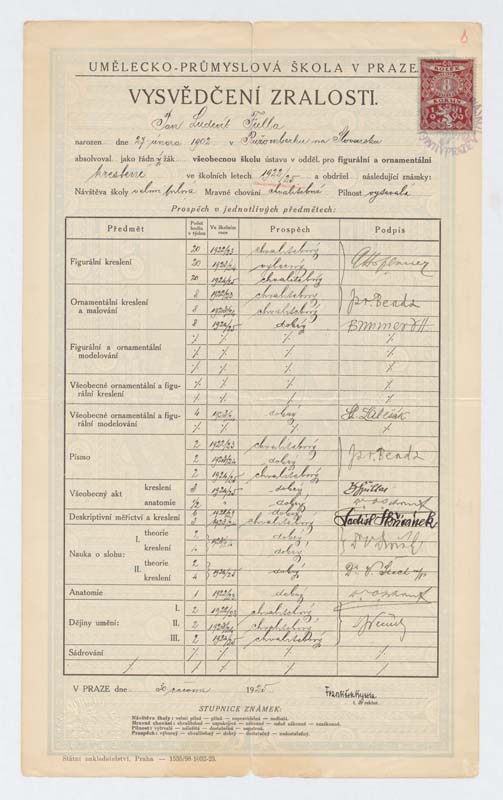 UMĚLECKO-PRŮMYSLOVÁ ŠKOLA V PRAZE.
VYSVĚDČENÍ ZRALOSTI.
Jan Ludevít Fulla
narozen dne 27 února 1902 v Ružomberku na Slovensku
absolvoval jako řádný žák všeobecnou školu ústavu v odděl. pro figurální a ornamentální
kreslení ve školních letech 1922/25 a obdržel následující známky:
Návštěva školy velmi pilná Mravné chování chvalitebné Pilnost vytrvalá
Prospěch v jednotlivých předmětech:
Předmět Počet hodin v týdnu Ve školním roce Prospěch Podpis
Figurální kreslení 20 1922/23 chvalitebný
20 1923/24 výborný
20 1924/25 chvalitebný
Ornamentální kreslení a malování 8 1922/23 chvalitebný
8 1923/24 chvalitebný pr. Benda
8 1924/25 dobrý Brunner
Figurální a ornamentální modelování
Všeobecné ornamentální a figurální kreslení
Všeobecné ornamentální a figurální modelování 4 dobrý
Písmo 2 1922/23 chvalitebný
2 1923/24 dobrý pr. Benda
2 1924/25 chvalitebný
Všeobecný akt kreslení 8 1924/25 dobrý
anatomie dobrý
Deskriptivní měřictví a kreslení dobrý
3 chvalitebný Ladisl. Skřivánek
Nauka o slohu: I. theorie 2 dobrý
kreslení 4 dobrý
II. theorie 2 1924/25 dobrý Dr. V.
kreslení 4
Anatomie 1 dobrý
Dějiny umění: I. 2 1922/23 chvalitebný
II. 2 1923/24 dobrý
III. 2 1924/25 chvalitebný
Sádrování
V PRAZE dne 30 června 1925
t. č. rektor.
STUPNICE ZNÁMEK:
Návštěva školy: velmi pilná — pilná — nepravidelná — nedbalá.
Mravné chování: chvalitebné — uspokojivé — zákonné — méně zákonné — nezákonné.
Pilnost: vytrvalá — náležitá — dostatečná — nepatrná.
Prospěch: výborný — chvalitebný — dobrý — dostatečný — nedostatečný.
Státní nakladatelství, Praha — 1535/98 1692-23.